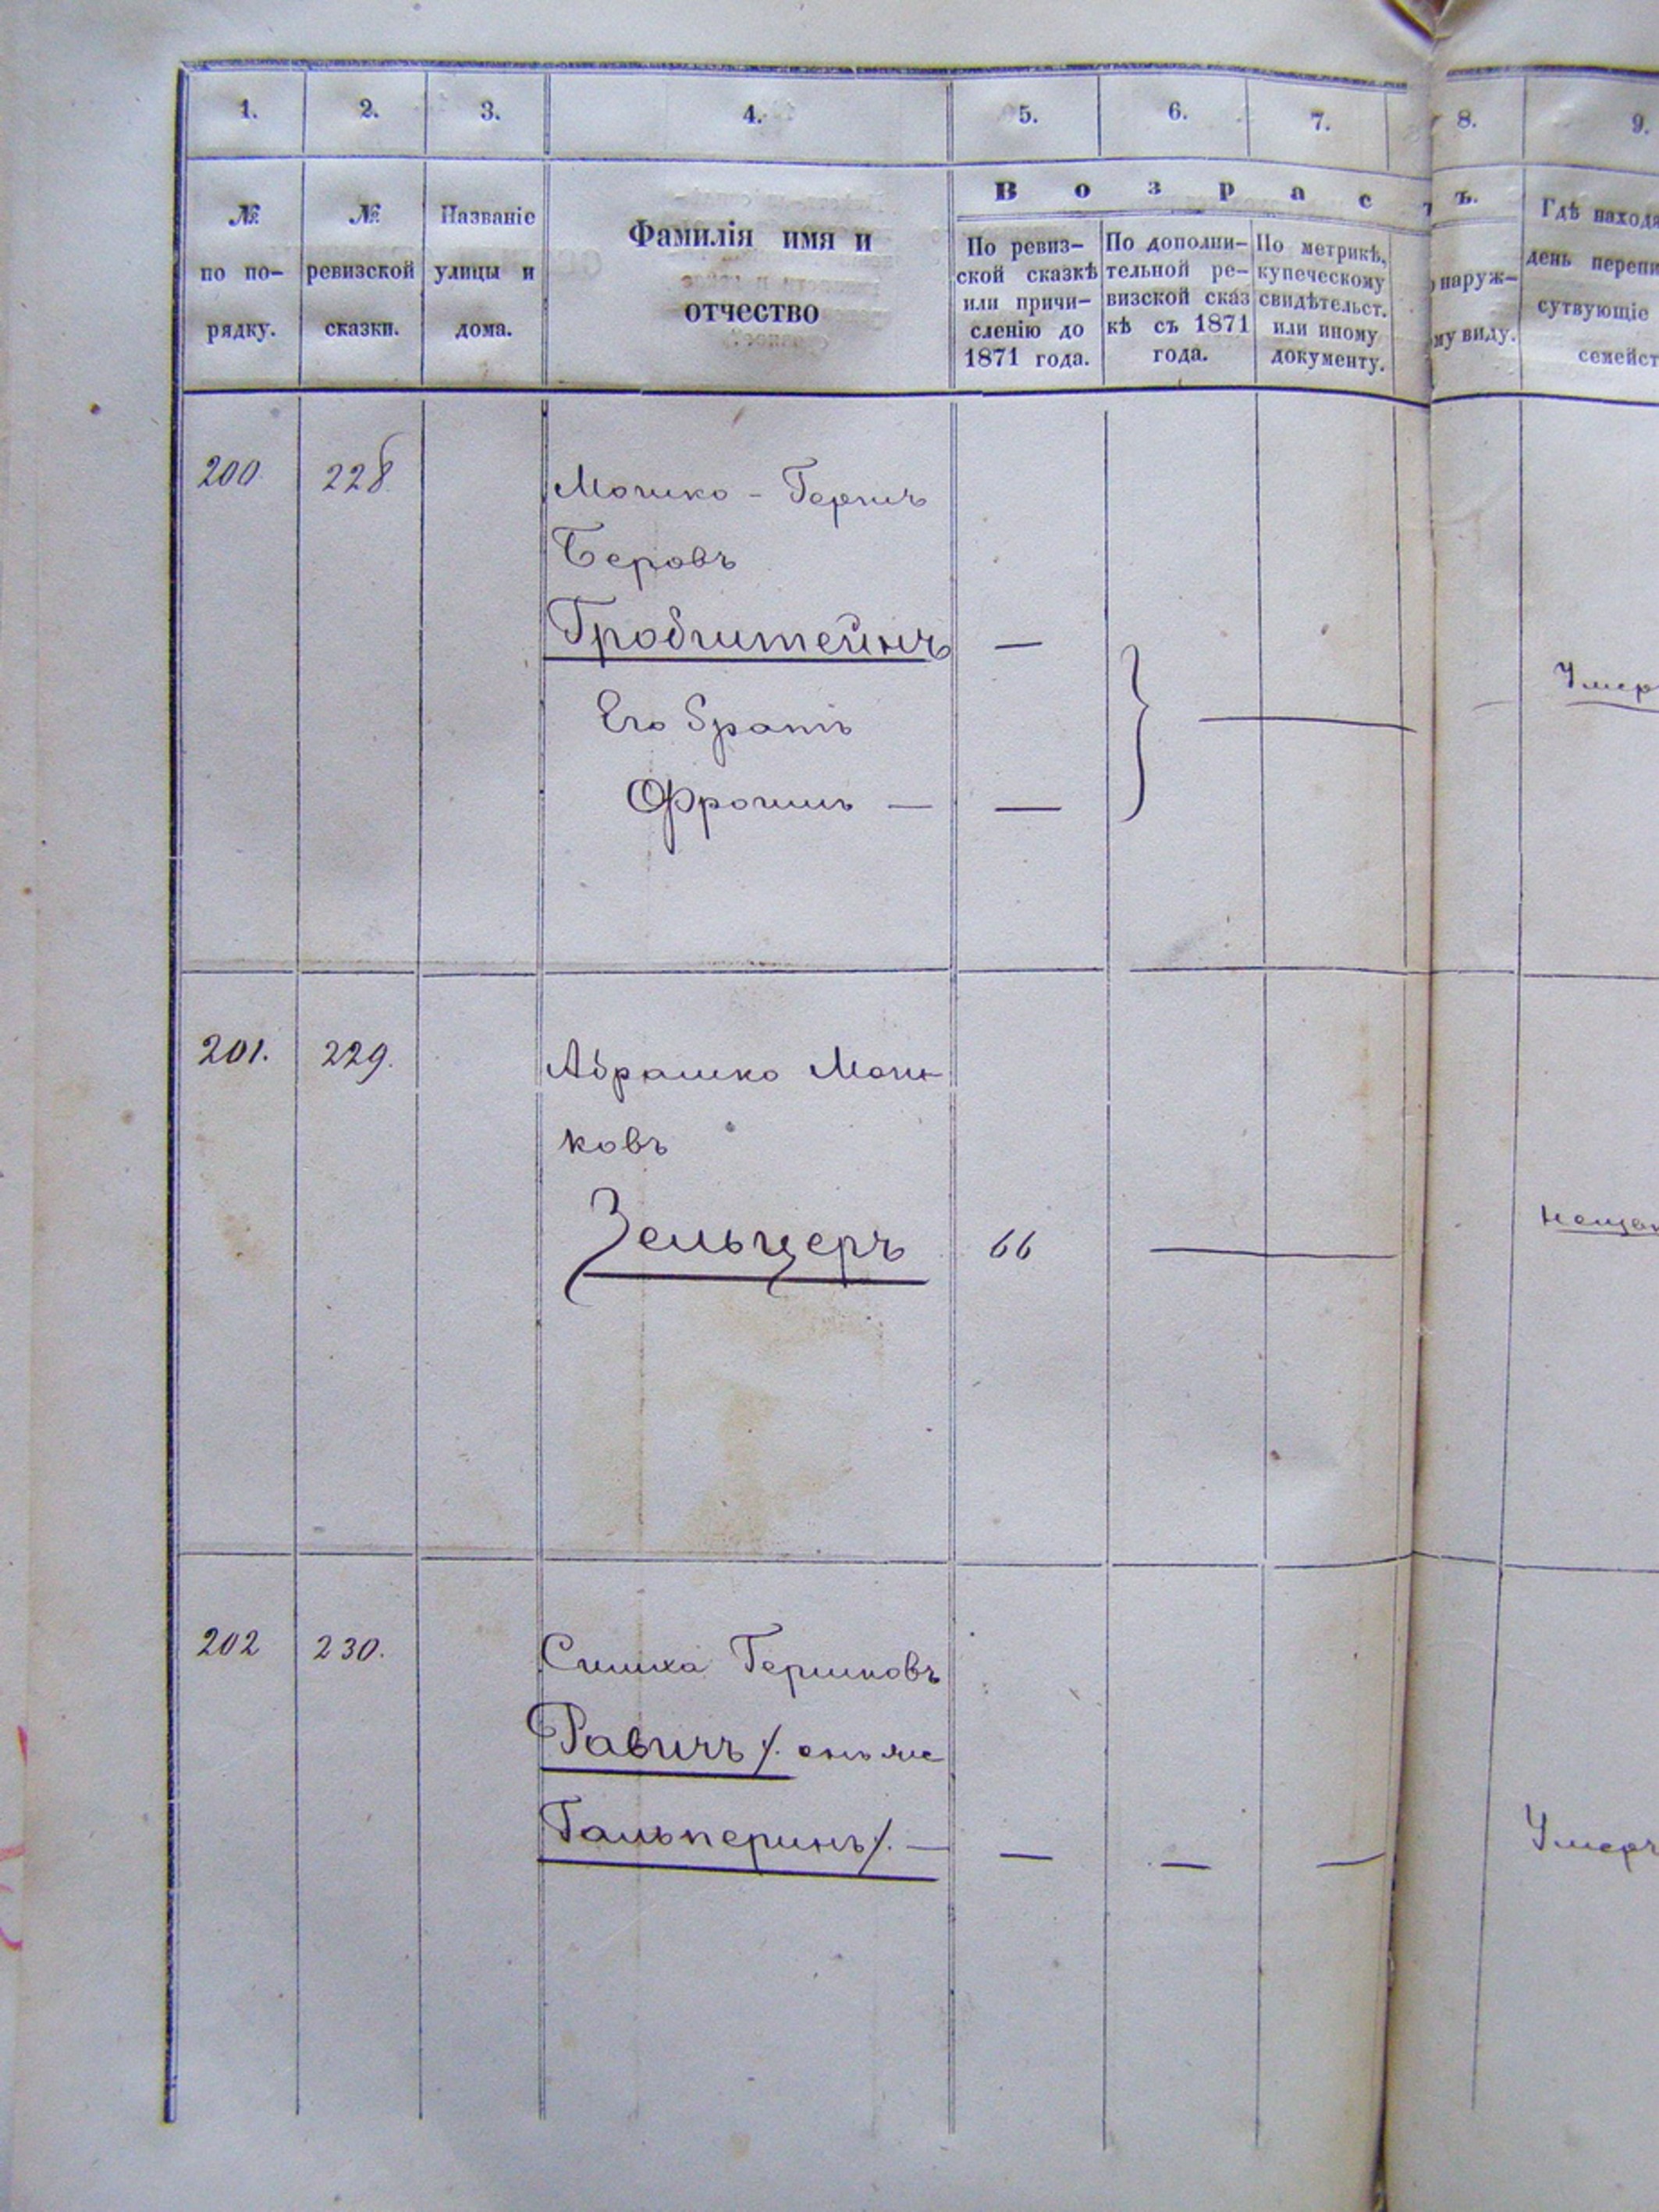 1. 2. 3. 4. 5. 6. 7. 8. 9.
№ по по-
рядку.
№
ревизской
сказки.
Названіе
улицы и
дома.
Фамилія имя и
отчество
Возрастъ.
По ревиз-
ской сказкѣ
или причи-
сленію до
1871 года.
По дополни-
тельной ре-
визской сказ
кѣ съ 1871
года.
По метрикѣ,
купеческому
свидѣтельст.
или иному
документу.
наруж-
му виду.
Гдѣ находя
день перепи
сутвующіе
семейст
200. 228.
Мошко - Гершъ
Беровъ
Гробштейнъ —
Его братъ
Фроимъ — —
Умер
201. 229.
Абрашко Мош-
ковъ
Зельцеръ 66
202 230.
Симха Гершковъ
Равичъ /. онъ же
Гальперинъ /. — — — —
Умеръ